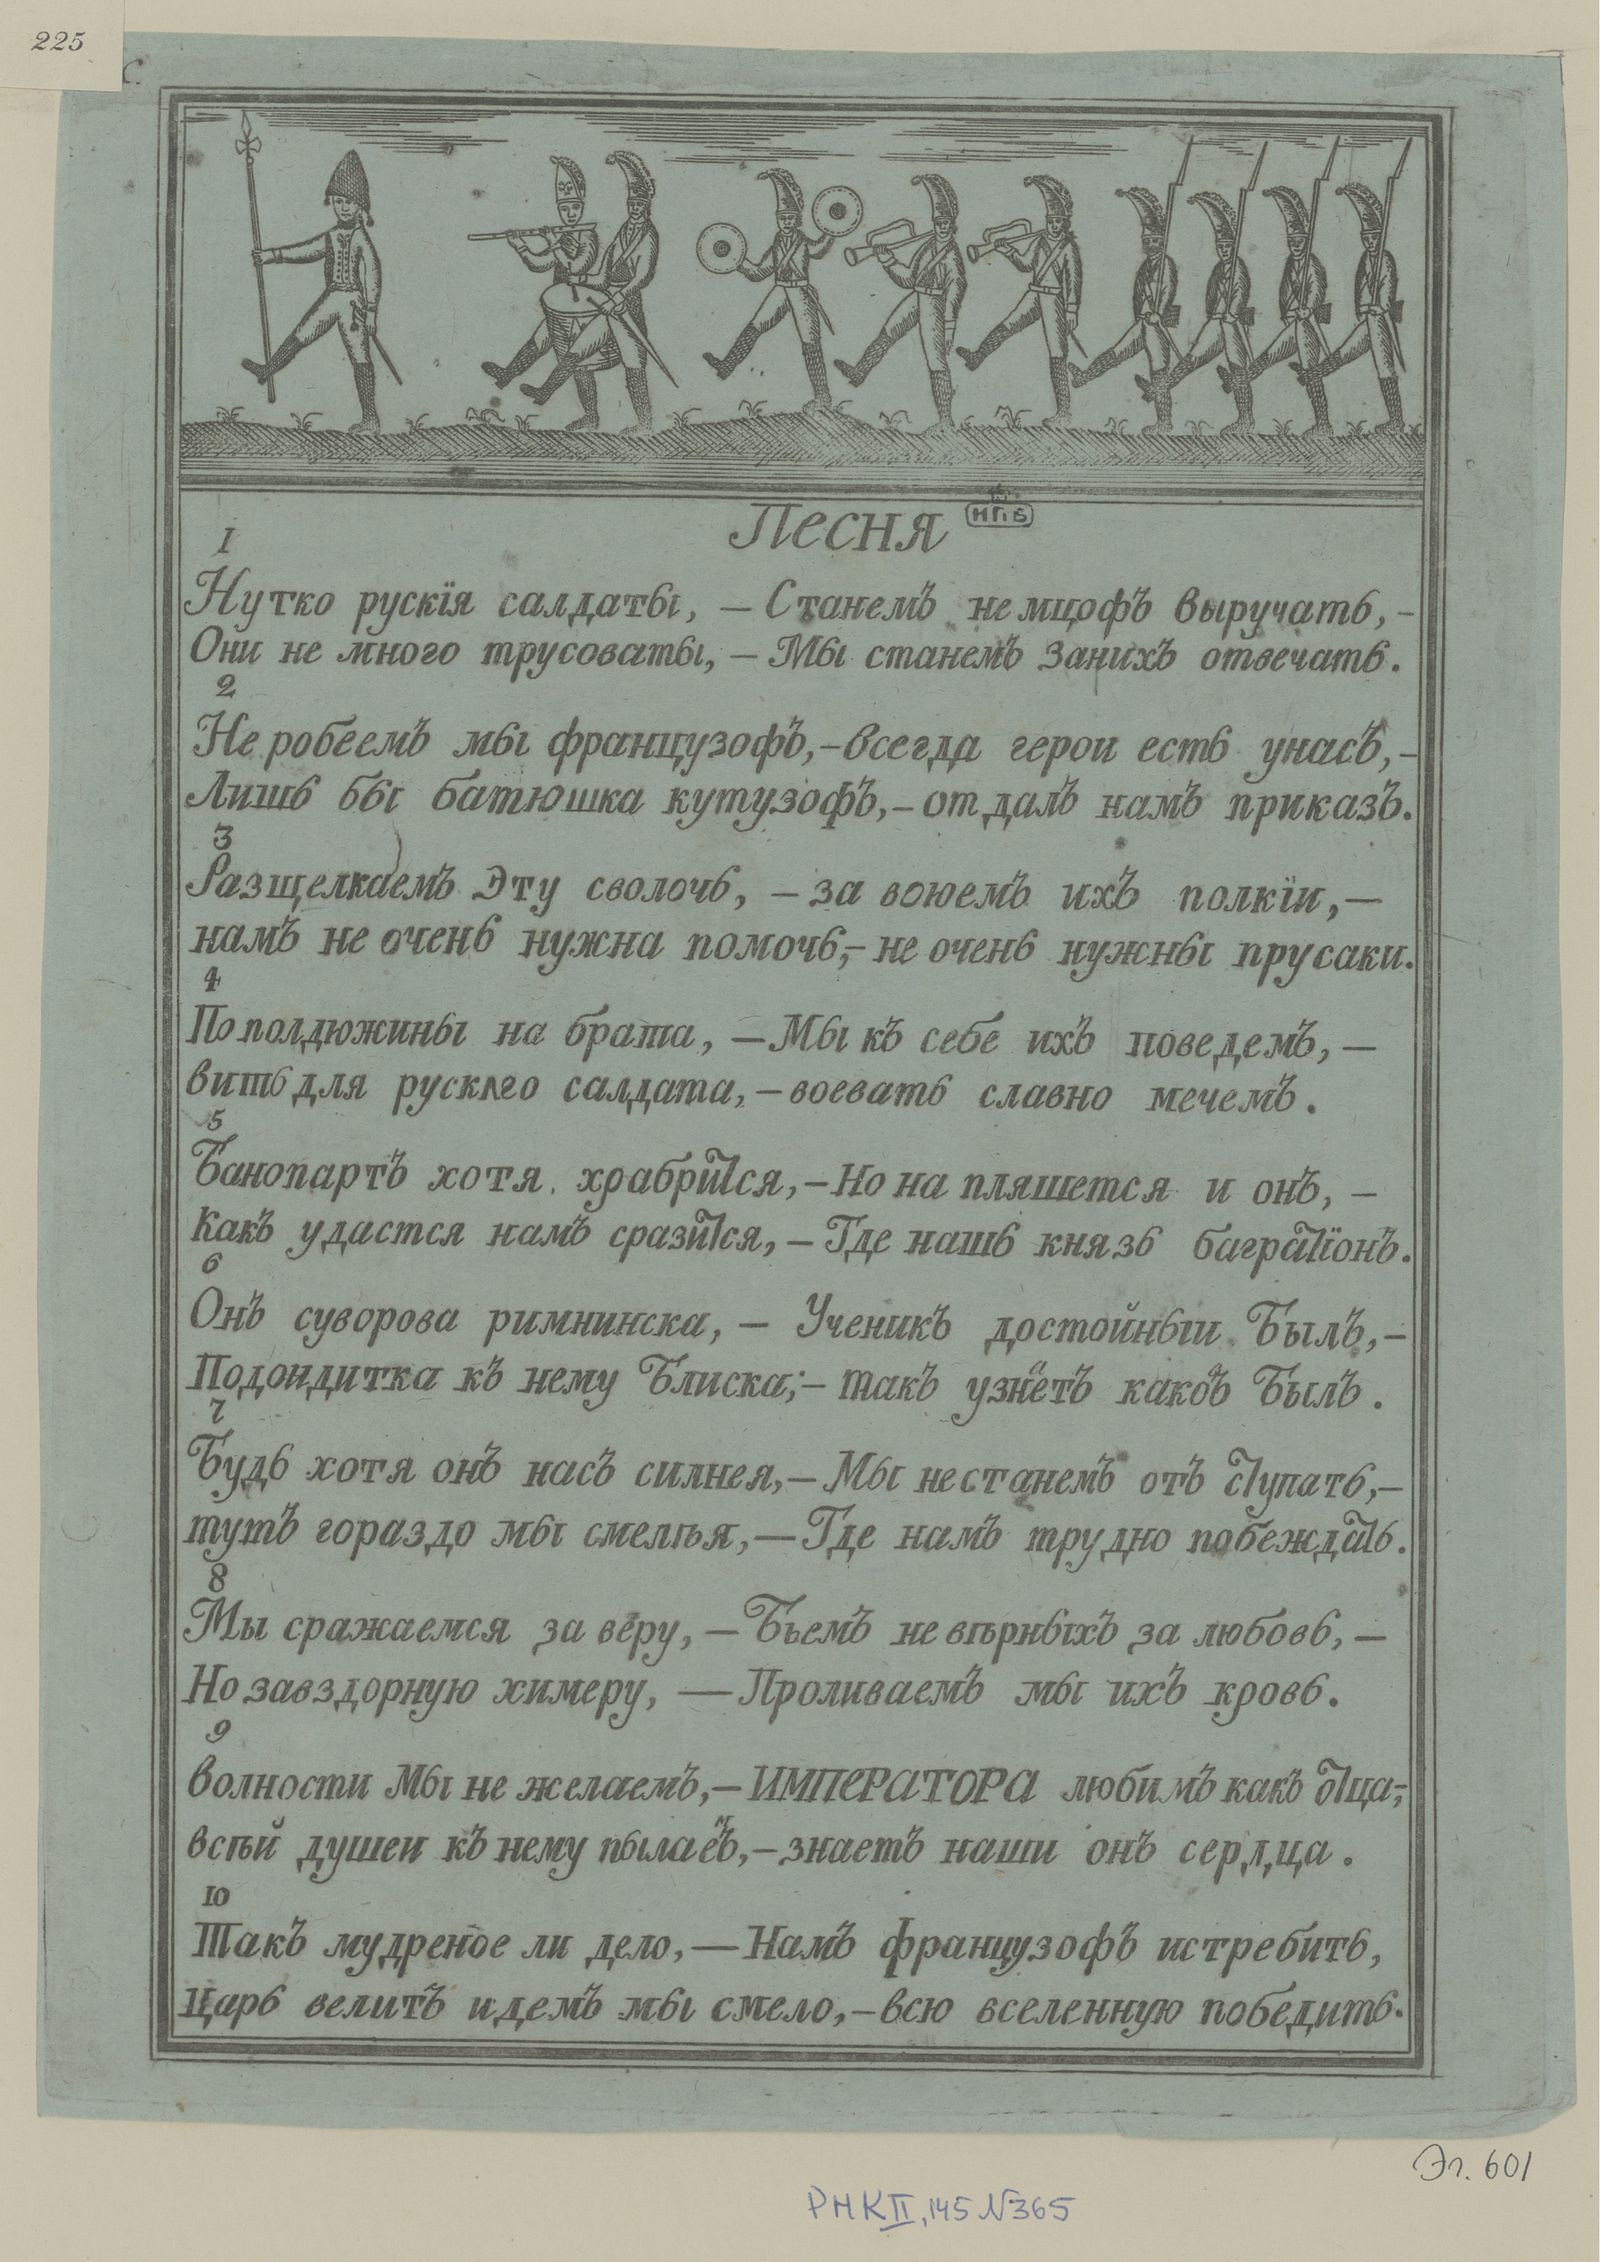 225
С.
Песня
НПБ
1
Нутко рускїя салдаты, — Станемъ немцофъ выручать, -
Они не много трусоваты, — Мы станемъ занихъ отвечать.
2
Не робеемъ мы французофъ, - всегда герои есть унасъ, -
Лишь бы батюшка кутузофъ, - от далъ намъ приказъ.
3
Разщелкаемъ Эту сволочь, — за воюемъ ихъ полкїи, —
намъ не очень нужна помочь, - не очень нужны прусаки.
4
По полдюжины на брата, — Мы къ себе ихъ поведемъ, —
вить для рускаго салдата, — воевать славно мечемъ.
5
Банопартъ хотя храбрится, — Но на пляшется и онъ, —
Какъ удастся намъ сразится, — Где нашь князь багратїонъ.
6
Онъ суворова римнинска, — Ученикъ достойныи Былъ, -
Подоидитка къ нему Блиска; - такъ узнаетъ каковъ Былъ.
7
Будь хотя онъ насъ силнея, — Мы нестанемъ отъ ступать, -
тутъ гораздо мы смелѣя, — Где намъ трудно побеждать.
8
Мы сражаемся за веру, — Бьемъ не вѣрныхъ за любовь, —
Но завздорную химеру, — Проливаемъ мы ихъ кровь.
9
волности Мы не желаемъ, — ИМПЕРАТОРА любимъ какъ отца; -
всѣй душеи къ нему пылаемъ, — знаетъ наши онъ сердца.
10
Такъ мудреное ли дело, — Намъ французофъ истребить,
Царь велитъ идемъ мы смело, — всю вселенную победить.
Эл. 601
РНК II, 145 N365